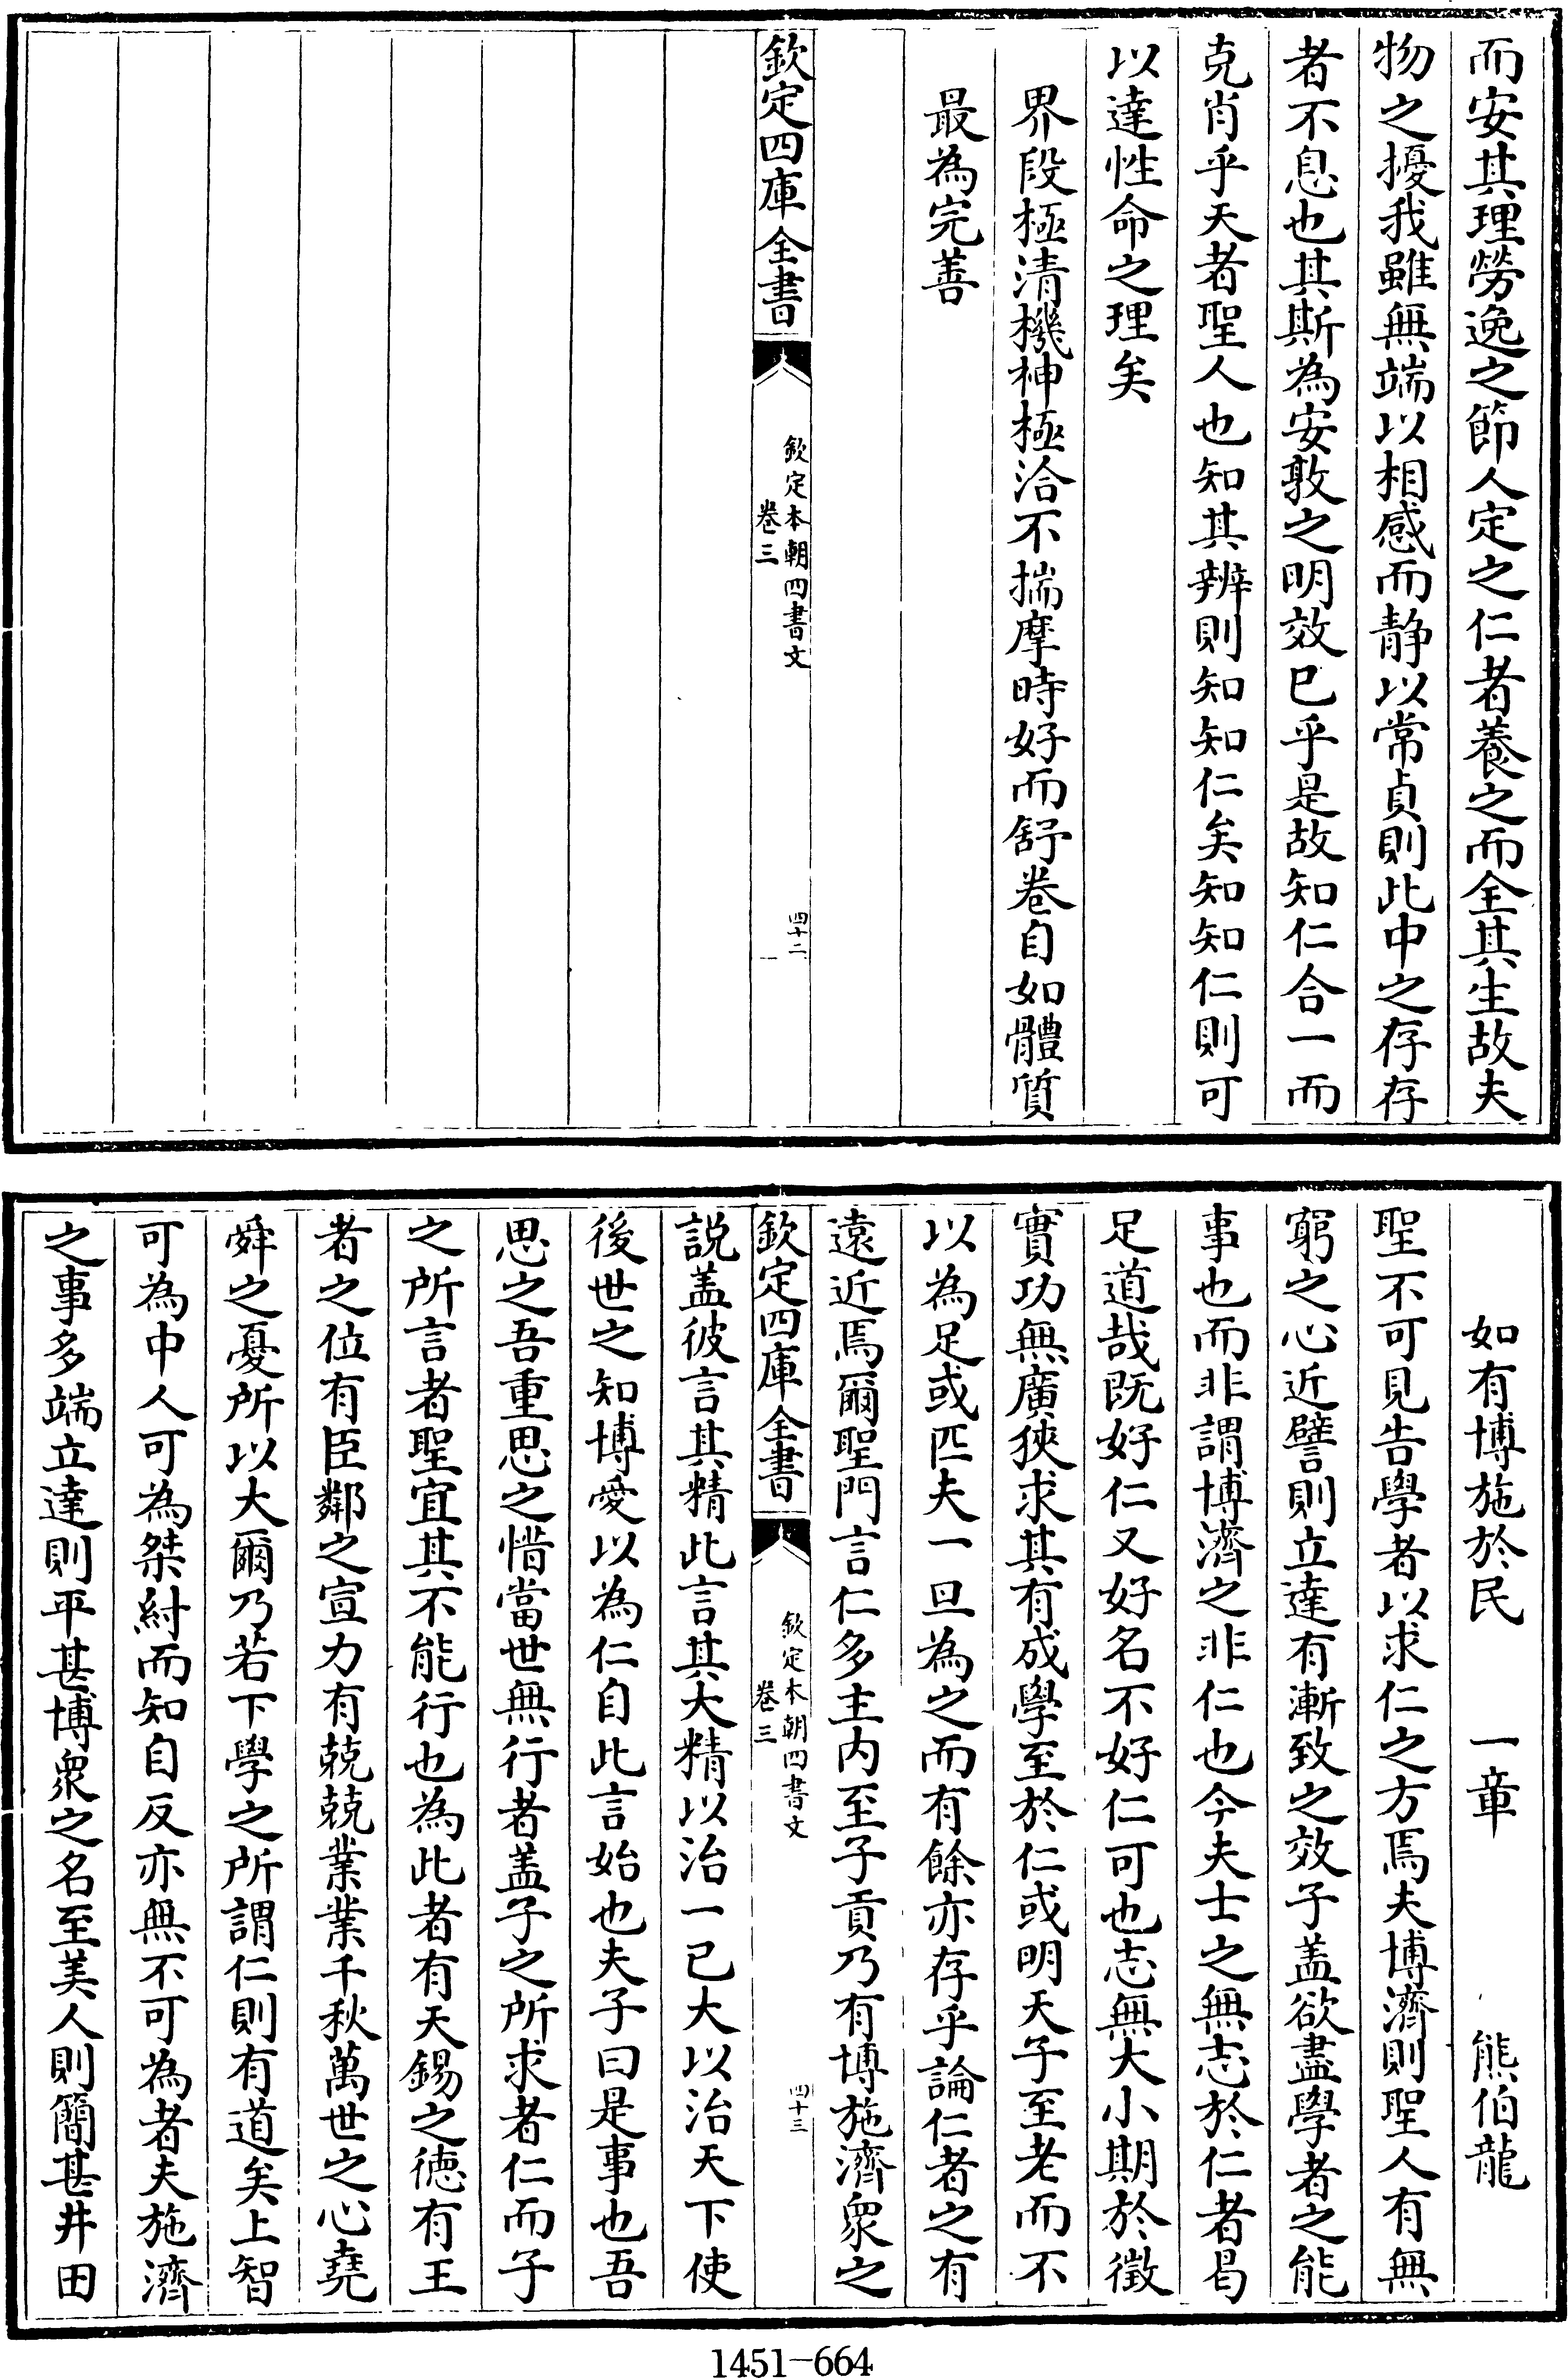 而安其理勞逸之節人定之仁者養之而全其生故夫
物之擾我雖無端以相感而静以常貞則此中之存存
者不息也其斯為安敦之明效已乎是故知仁合一而
克肖乎天者聖人也知其辨則知知仁矣知知仁則可
以達性命之理矣
界段極清機神極洽不揣摩時好而舒卷自如體質
最為完善
欽定四庫全書
欽定本朝四書文
卷三
四十二
如有博施於民 一章 熊伯龍
聖不可見告學者以求仁之方焉夫博濟則聖人有無
窮之心近譬則立達有漸致之效子盖欲盡學者之能
事也而非謂博濟之非仁也今夫士之無志於仁者曷
足道哉既好仁又好名不好仁可也志無大小期於徵
實功無廣狹求其有成學至於仁或明天子至老而不
以為足或匹夫一旦為之而有餘亦存乎論仁者之有
遠近焉爾聖門言仁多主内至子貢乃有博施濟衆之
欽定四庫全書
欽定本朝四書文
卷三
四十三
説盖彼言其精此言其大精以治一已大以治天下使
後世之知博愛以為仁自此言始也夫子曰是事也吾
思之吾重思之惜當世無行者盖子之所求者仁而子
之所言者聖宜其不能行也為此者有天錫之德有王
者之位有臣鄰之宣力有兢兢業業千秋萬世之心堯
舜之憂所以大爾乃若下學之所謂仁則有道矣上智
可為中人可為桀紂而知自反亦無不可為者夫施濟
之事多端立達則平甚博衆之名至美人則簡甚井田
1451-664